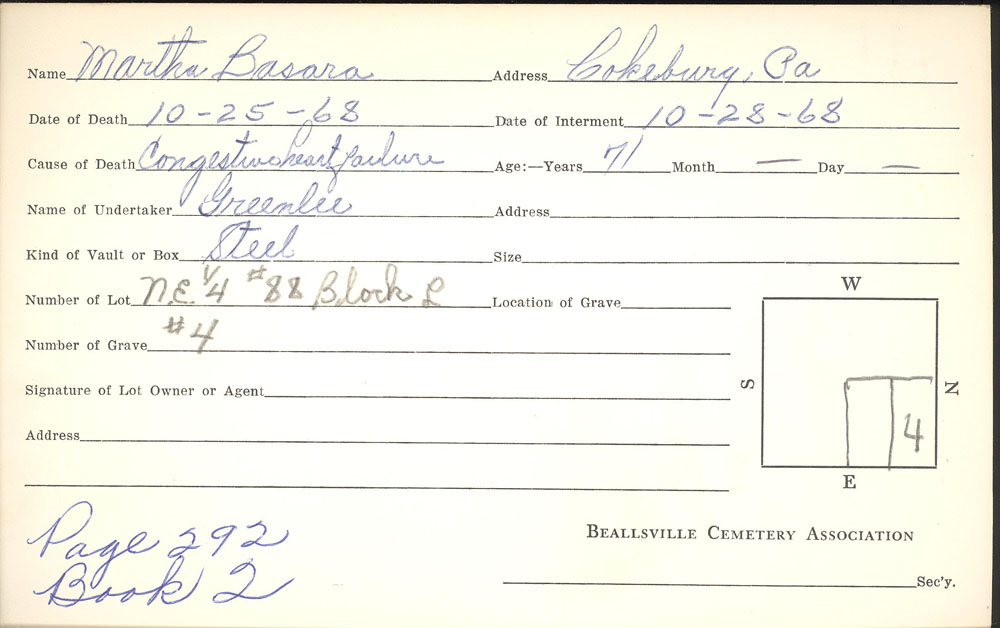 Name Martha Basara Address Cokeburg, Pa
Date of Death 10-25-68 Date of Interment 10-28-68
Cause of Death Congestive heart failure Age:—Years 71 Month — Day —
Name of Undertaker Greenlee Address
Kind of Vault or Box Steel Size
Number of Lot N.E. 1/4 #88 Block L Location of Grave
Number of Grave #4
Signature of Lot Owner or Agent
Address
W
S N
4
E
Page 292
Book 2
BEALLSVILLE CEMETERY ASSOCIATION
Sec'y.